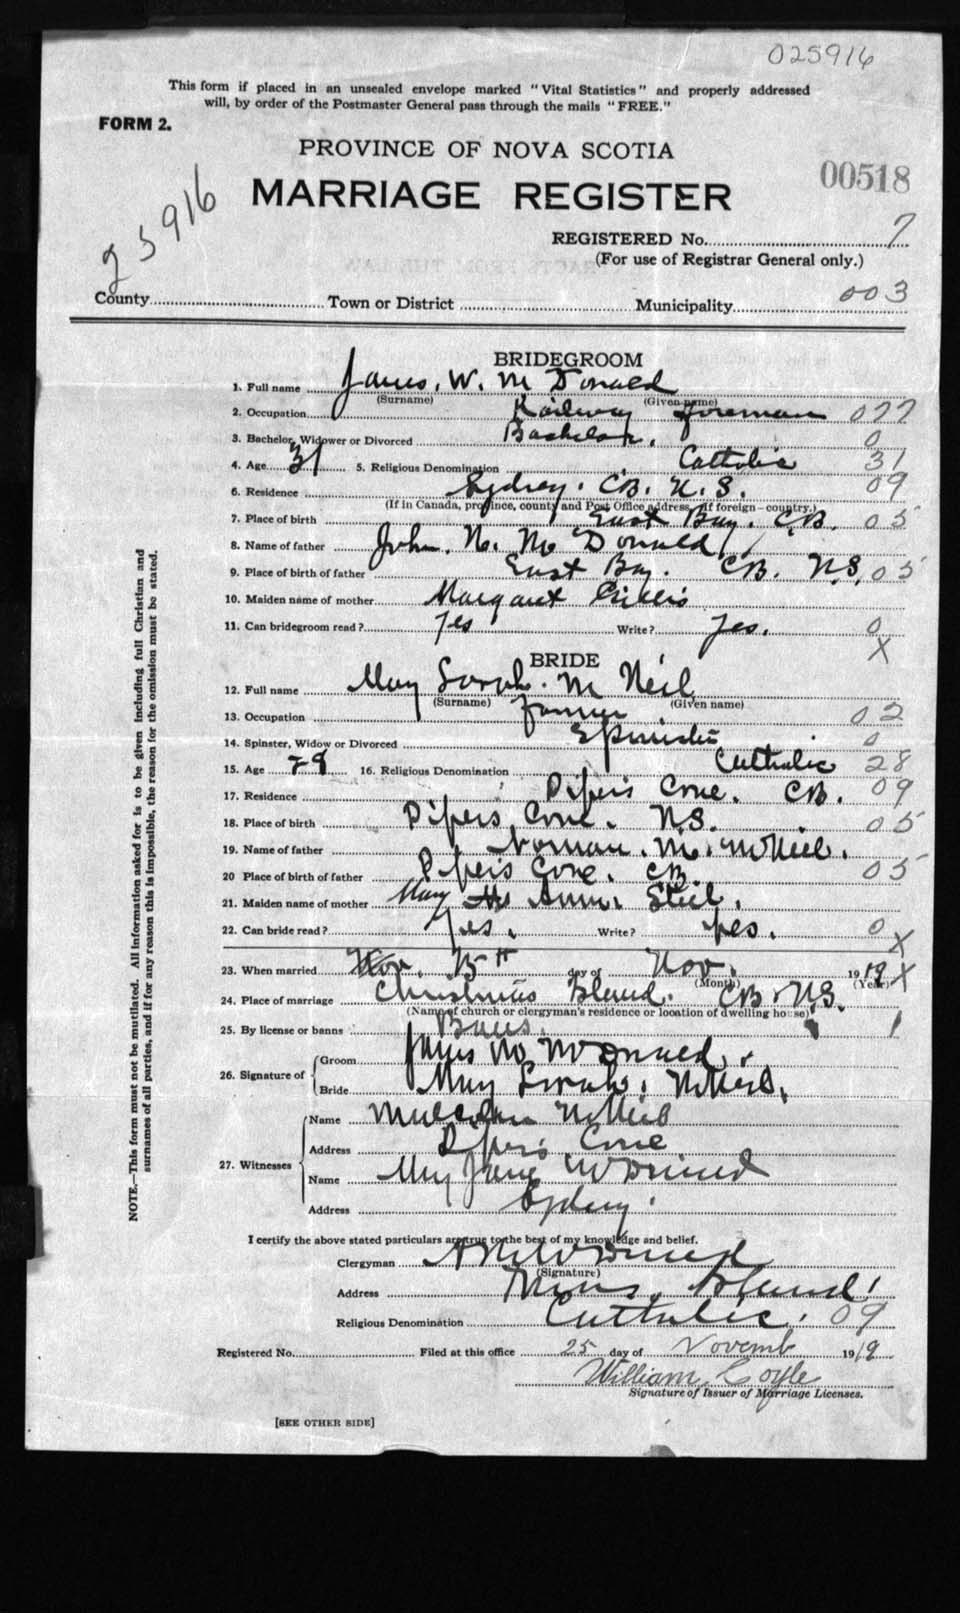 025916
This form if placed in an unsealed envelope marked "Vital Statistics" and properly addressed
will, by order of the Postmaster General pass through the mails "FREE."
FORM 2.
PROVINCE OF NOVA SCOTIA
00518
25916
MARRIAGE REGISTER
REGISTERED No. 7
(For use of Registrar General only.)
County Town or District Municipality 003
BRIDEGROOM
1. Full name James. W. Mc Donald
(Surname) (Given name)
2. Occupation Railway foreman 022
3. Bachelor, Widower or Divorced Bachelor. 0
4. Age 31 5. Religious Denomination Catholic 31
6. Residence Sydney. CB. N.S. 09
(If in Canada, province, county and Post Office address, if foreign—country.)
7. Place of birth East Bay. CB. 05
8. Name of father John. N. Mc Donald
9. Place of birth of father East Bay. CB. N.S. 05
10. Maiden name of mother Margaret
11. Can bridegroom read? Yes Write? Yes. 0
X
BRIDE
12. Full name May Sarah. Mc Neil
(Surname) (Given name)
13. Occupation 02
14. Spinster, Widow or Divorced Spinster 0
15. Age 28 16. Religious Denomination Catholic 28
17. Residence Pipers Cove. CB. 09
18. Place of birth Pipers Cove. N.S. 05
19. Name of father Norman. M. McNeil.
20 Place of birth of father Pipers Cove. CB 05
21. Maiden name of mother Mary Ann.
22. Can bride read? Yes. Write? yes. 0
X
23. When married Nov. 15th day of Nov. 1919 X
(Month) (Year)
24. Place of marriage Christmas Island. CB. N.S.
(Name of church or clergyman's residence or location of dwelling house) 1
25. By license or banns Banns.
26. Signature of Groom James W McDonald.
Bride May Sarah. McNeil.
27. Witnesses Name Malcolm McNeil
Address Pipers Cove
Name May Jane McDonald
Address Sydney.
I certify the above stated particulars are true to the best of my knowledge and belief.
Clergyman McDonald
(Signature)
Address Xmas Island.
Religious Denomination Catholic. 09
Registered No. Filed at this office 25 day of Novemb 1919
William Coyle
Signature of Issuer of Marriage Licenses.
[SEE OTHER SIDE]
NOTE.—This form must not be mutilated. All information asked for is to be given including full Christian and
surnames of all parties, and if for any reason this is impossible, the reason for the omission must be stated.